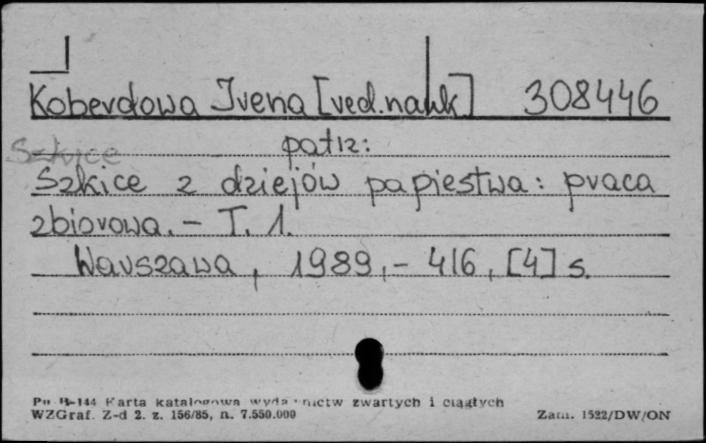 Koberdowa Irena [red.nauk] 308446
Szkice
patrz:
Szkice z dziejów papiestwa: praca
zbiorowa. - T. 1.
Warszawa, 1989, - 416, [4] s.
Pu B-144 Karta katalogowa wydawnictw zwartych i ciągłych
WZGraf. Z-d 2. z. 156/85, n. 7.550.000 Zam. 1522/DW/ON